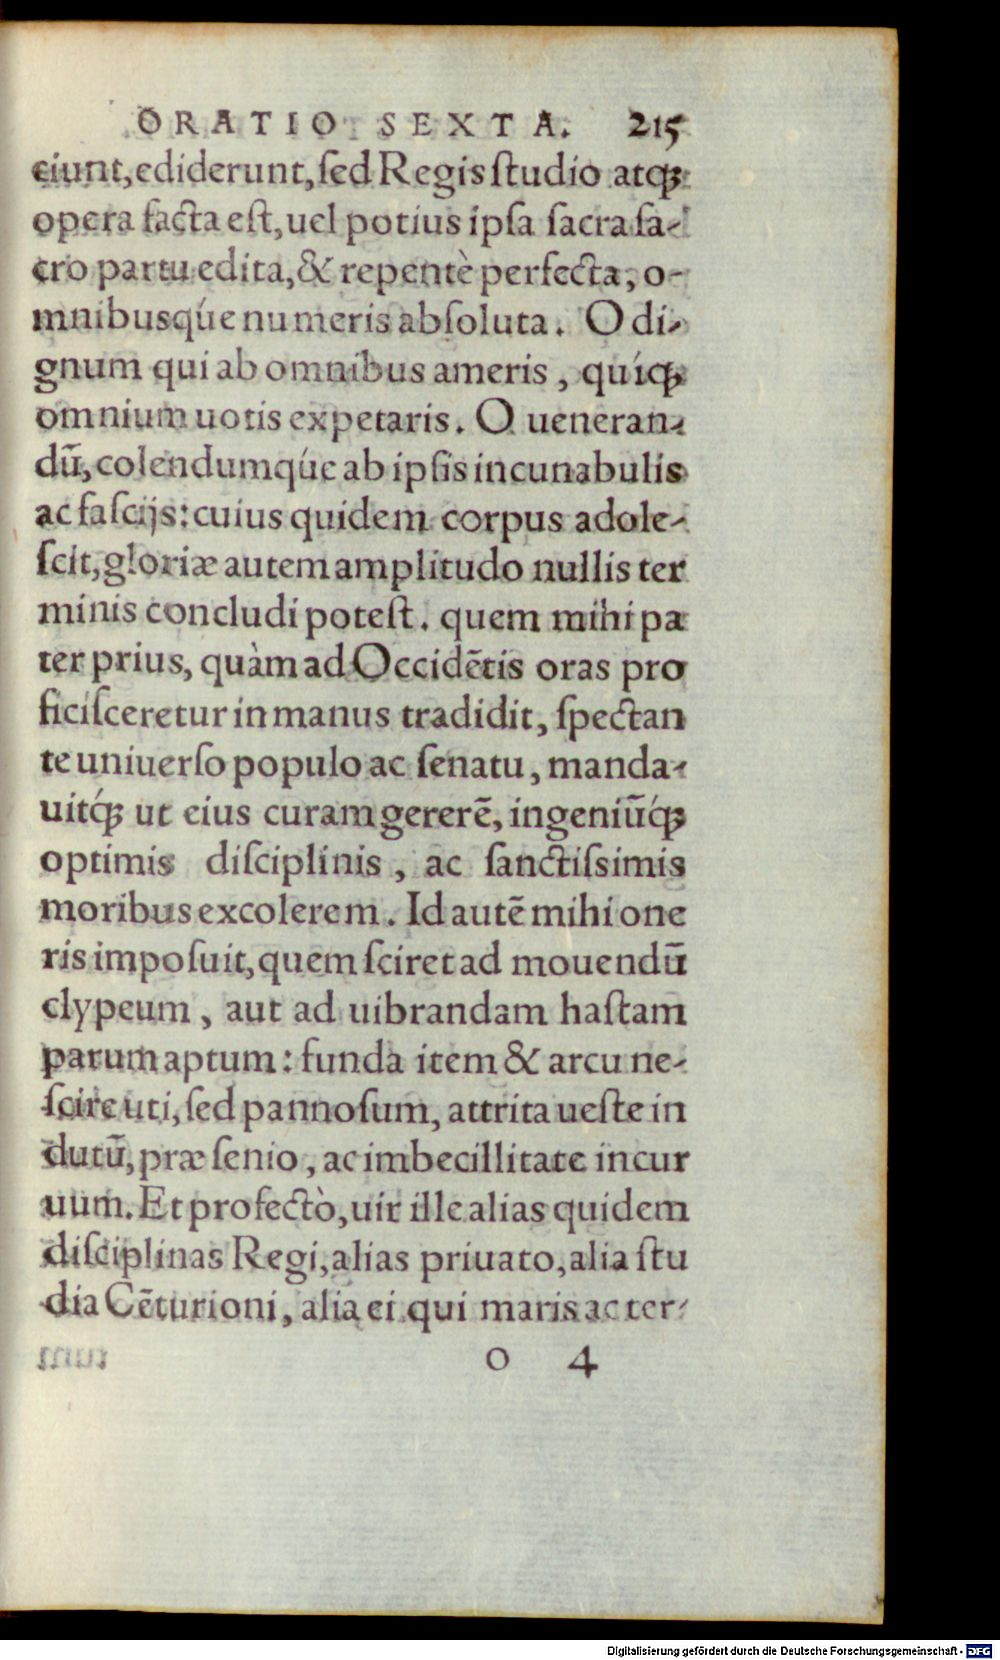 ORATIO SEXTA. 215
ciunt, ediderunt, ſed Regis ſtudio atq;
opera facta eſt, uel potius ipſa ſacra ſa-
cro partu edita, & repentè perfecta, o-
mnibusq́ue numeris abſoluta. O di-
gnum qui ab omnibus ameris, quíq;
omnium uotis expetaris. O ueneran-
dū, colendumq́ue ab ipſis incunabulis
ac faſcijs: cuius quidem corpus adole-
ſcit, gloriæ autem amplitudo nullis ter
minis concludi poteſt. quem mihi pa
ter prius, quàm ad Occidētis oras pro
ficiſceretur in manus tradidit, ſpectan
te uniuerſo populo ac ſenatu, manda-
uitq́; ut eius curam gererē, ingeniūq́;
optimis diſciplinis, ac ſanctiſsimis
moribus excolerem. Id autē mihi one
ris impoſuit, quem ſciret ad mouendū
clypeum, aut ad uibrandam haſtam
parum aptum: funda item & arcu ne-
ſcire uti, ſed pannoſum, attrita ueſte in
dutū, præ ſenio, ac imbecillitate incur
uum. Et profectò, uir ille alias quidem
diſciplinas Regi, alias priuato, alia ſtu
dia Cēturioni, alia ei qui maris ac ter-
o 4
Digitalisierung gefördert durch die Deutsche Forschungsgemeinschaft - DFG